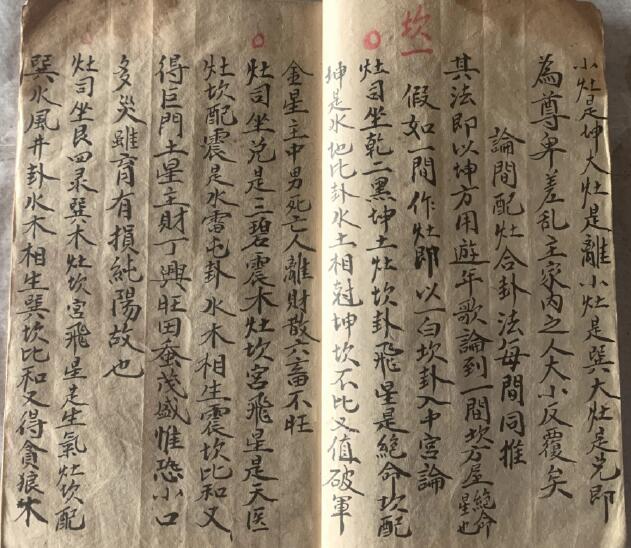 小灶是坤大灶是離小灶是巽大灶是兑即
為尊卑差乱主家内之人大小反覆矣
論間配灶合卦法每間同推
其法即以坤方用遊年歌論到一間坎方屋絶命星也
坎一
假如一間作灶即以一白坎卦入中宫論
灶司坐乾二黑坤土灶坎卦飛星是絶命坎配
坤是水地比卦水土相尅坤坎不比又值破軍
金星主中男死亡人離財散六畜不旺
灶司坐兑是三碧震木灶坎宫飛星是天医
灶坎配震是水雷屯卦水木相生震坎比和又
得巨門土星主財丁興旺田蚕茂盛惟恐小口
多災雖育有損純陽故也
灶司坐艮四录巽木灶坎宫飛星走生氣灶坎配
巽水風井卦水木相生巽坎比和又得貪狼木